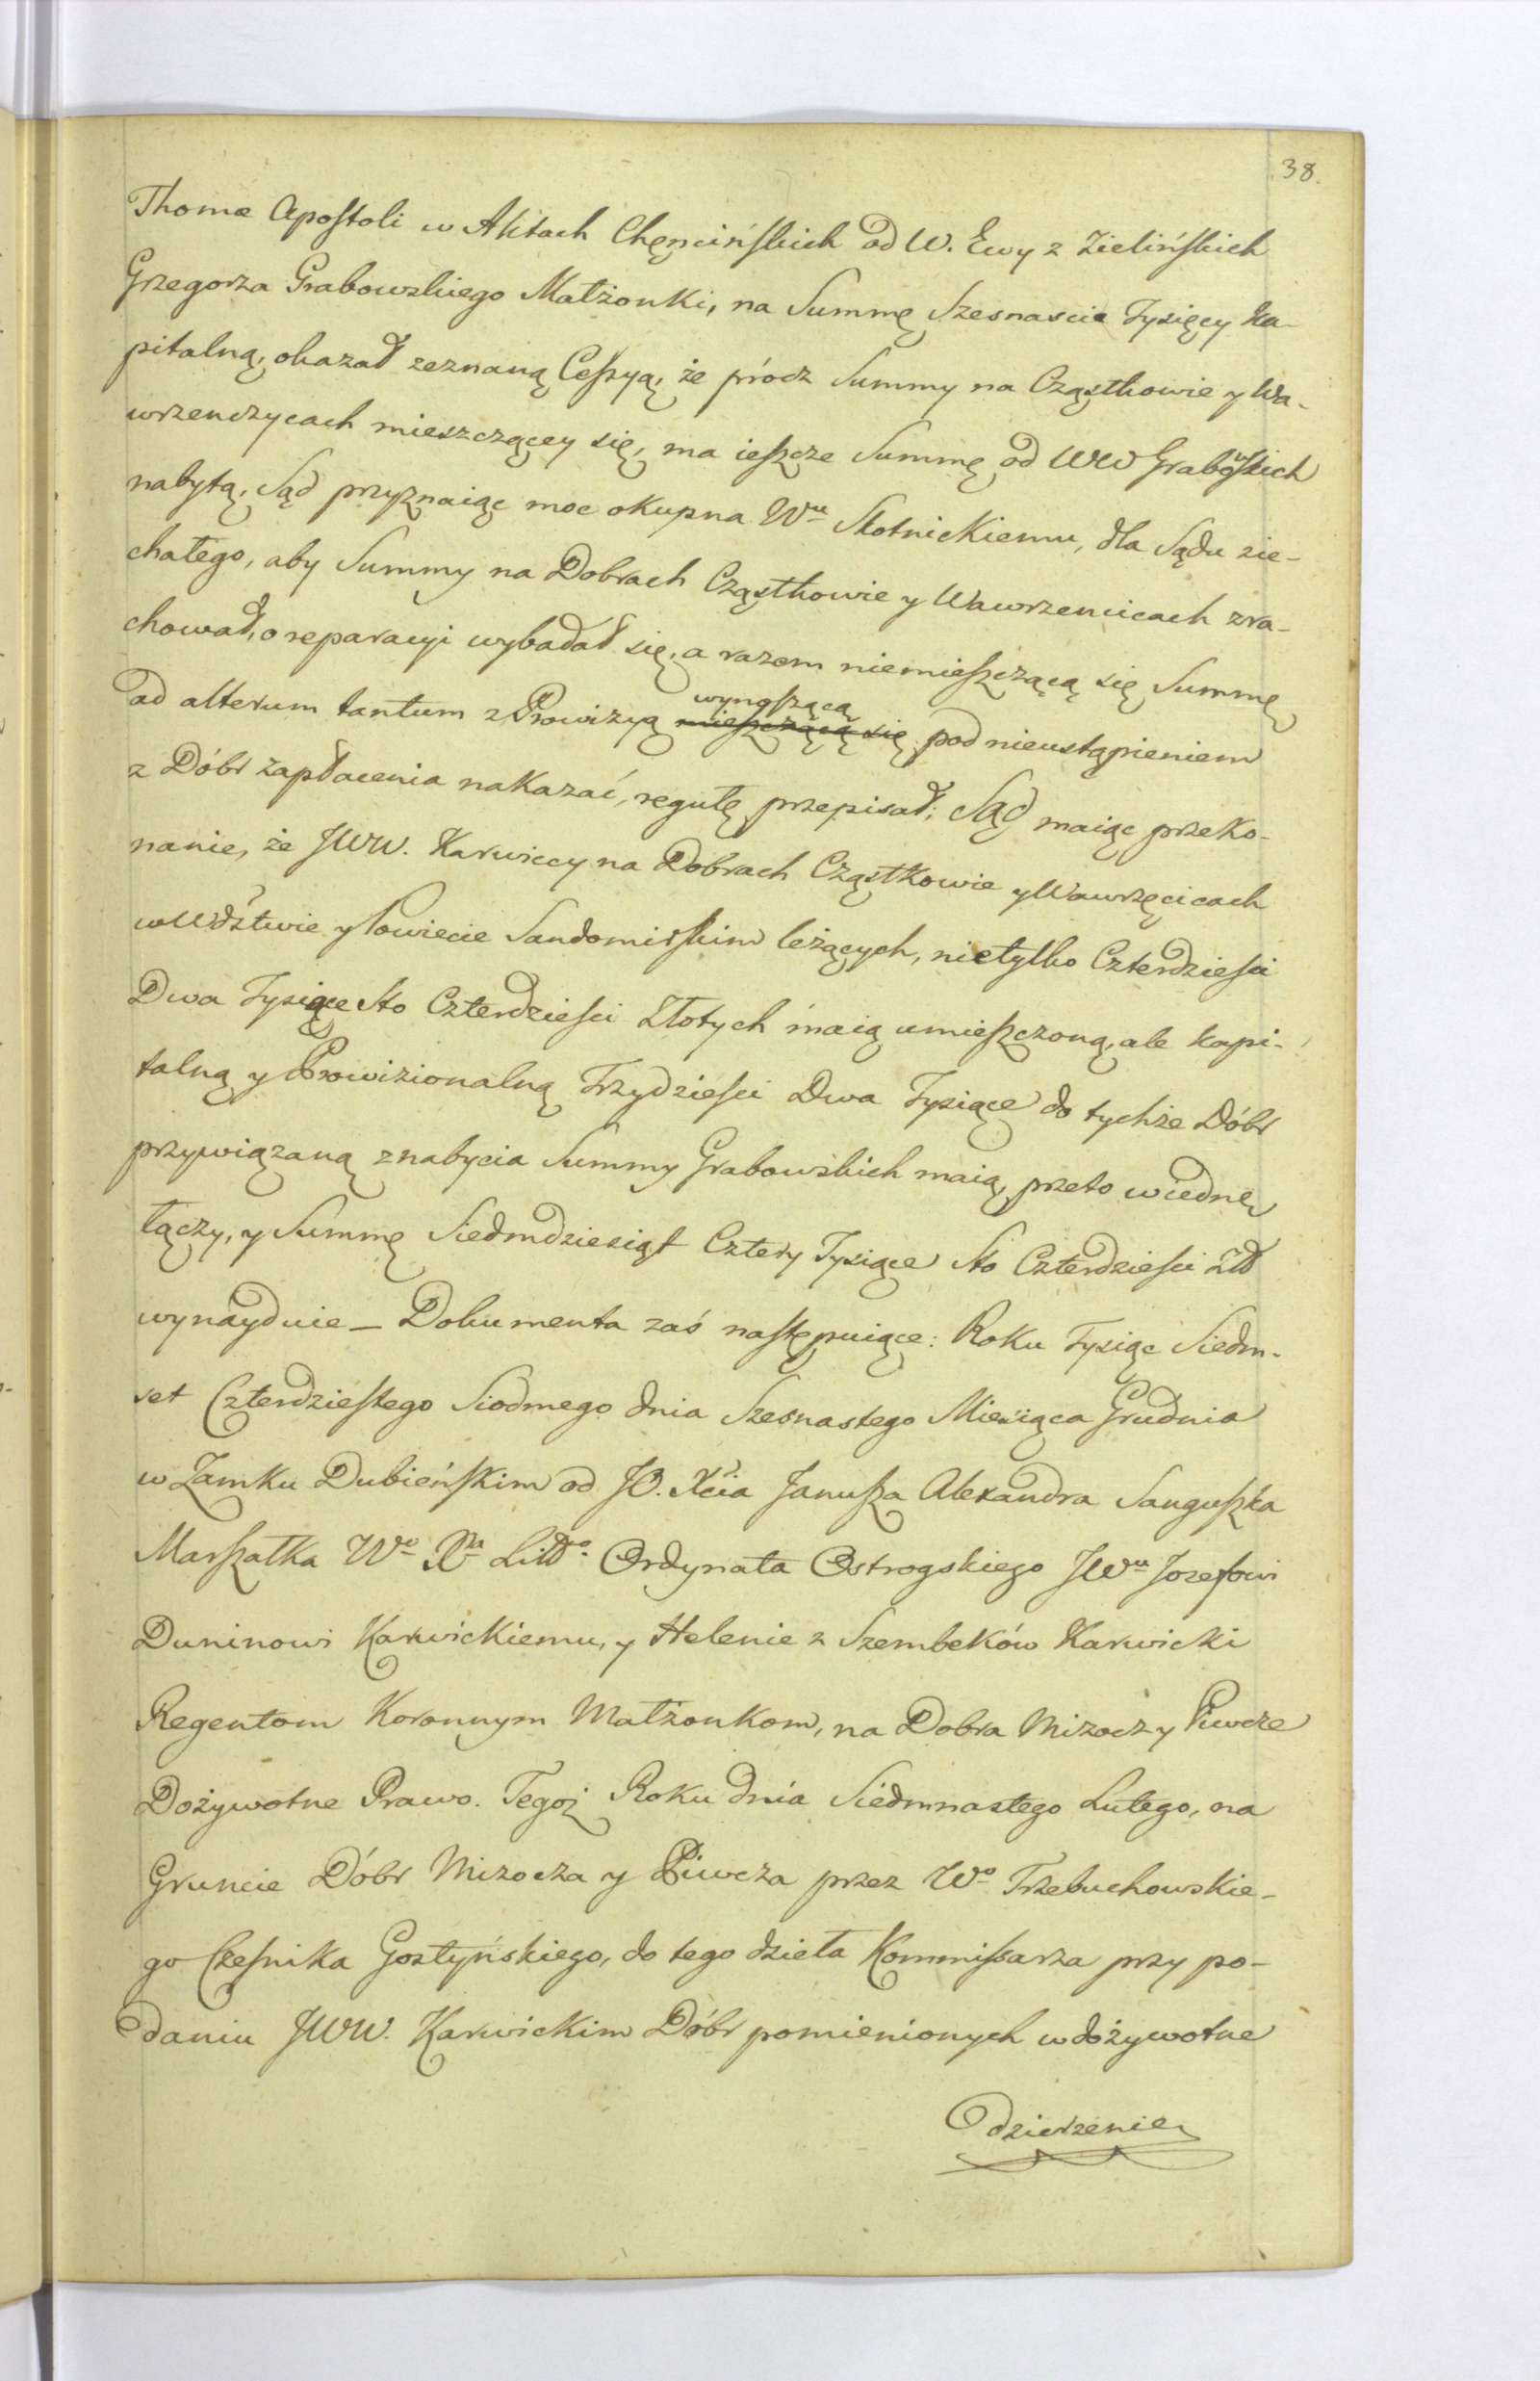 38.
Thomæ Apostoli w Aktach Chęncińskich od W. Ewy z Zielińskich
Grzegorza Grabowskiego Małżonki, na Summę Szesnascie Tysięcy ka-
pitalną, okazał zeznaną Cessyą, że prócz Summy na Cząstkowie y Wa-
wrzenczycach mieszczącey się, ma ieszcze Summę od WW Grabowskich
nabytą, Sąd przyznaiąc moc okupna Wu Skotnickiemu, dla Sądu zie-
chałego, aby Summy na Dobrach Cząstkowie y Wawrzencicach zra-
chował, o reparacyi wybadał się, a razem niemieszczącą się Summę
ad alterum tantum z Prowizyą mieszczącą się wynoszącą pod nieustąpieniem
z Dóbr zapłacenia nakazać, regułę przepisał; Sąd maiąc przeko-
nanie, że JWW. Karwiccy na Dobrach Cząstkowie y Wawrzęcicach
w Wdztwie y Powiecie Sandomirskim leżących, nietylko Czterdziesci
Dwa Tysiące Sto Czterdziesci Złotych maią umieszczoną, ale kapi-
talną y Prowizionalną Trzydziesci Dwa Tysiące do tychże Dóbr
przywiązaną z nabycia Summy Grabowskich maią, przeto w iednę
łączy, y Summę Siedmdziesiąt Cztery Tysiące Sto Czterdziesci Zł
wynayduie – Dokumenta zaś następuiące: Roku Tysiąc Siedm-
set Czterdziestego Siodmego dnia Szesnastego Miesiąca Grudnia
w Zamku Dubieńskim od JO. Xcia Janusza Alexandra Sanguszka
Marszałka Wo Xa Litto. Ordynata Ostrogskiego JWu Jozefowi
Duninowi Karwickiemu, y Helenie z Szembeków Karwicki
Regentom Koronnym Małżonkom, na Dobra Mizocz y Piwcze
Dożywotne Prawo. Tegoż Roku dnia Siedmnastego Lutego, na
Gruncie Dóbr Mizocza y Piwcza przez Wo Trzebuchowskie-
go Czesnika Gostyńskiego, do tego dzieła Kommissarza przy po-
daniu JWW. Karwickim Dóbr pomienionych w dożywotne
dzierżenie